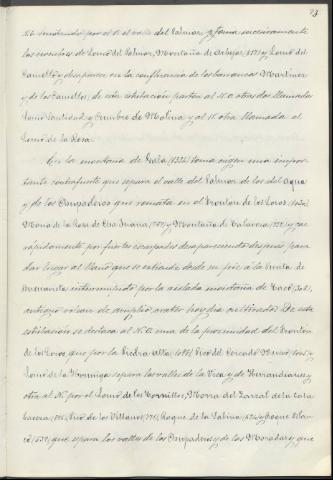 73
N.E. limitando por el N. el valle del Palmar, y toma sucesivamente
los nombres de Lomo del Palmar, Montaña de (577) y Lomo del
Camello y desaparece en la confluencia de los barrancos Martinez
y de los Camellos; de esta estribación parten al N.O. otras dos llamadas
y Cumbre de Molina y al N. otra llamada el
Lomo de la Rosa.
En la montaña de Gala (1354) toma origen una impor-
tante contrafuerte que separa el valle del Palmar de los del Agua
y de los Carrizales que remata en el Morrión de los Loros,
Mona de la Rosa de Tía Juana (757) y Montaña de Talavera y cae
rápidamente por fuertes escarpados desapareciendo después para
dar lugar al llano que se extiende desde su pié á la Punta de
Buenavista interrumpido por la aislada montaña de Taco
antiguo volcan de amplio crater hoy dia cultivado. De esta
estribación se destaca al N.O. una de la proximidad del Morrión
de los Loros, que por la Piedra Alta Pico del Cercado
Lomo de la Hormiga separa los valles de la Vica y de y
otra al N. por el Lomo de los Tornillos, Morra del Zarzal de la Cala-
bacera Pico de los Villanos Roque de la Sabina y Roque Blan-
co que separa los valles de los Carrizales y de los Moradas y que